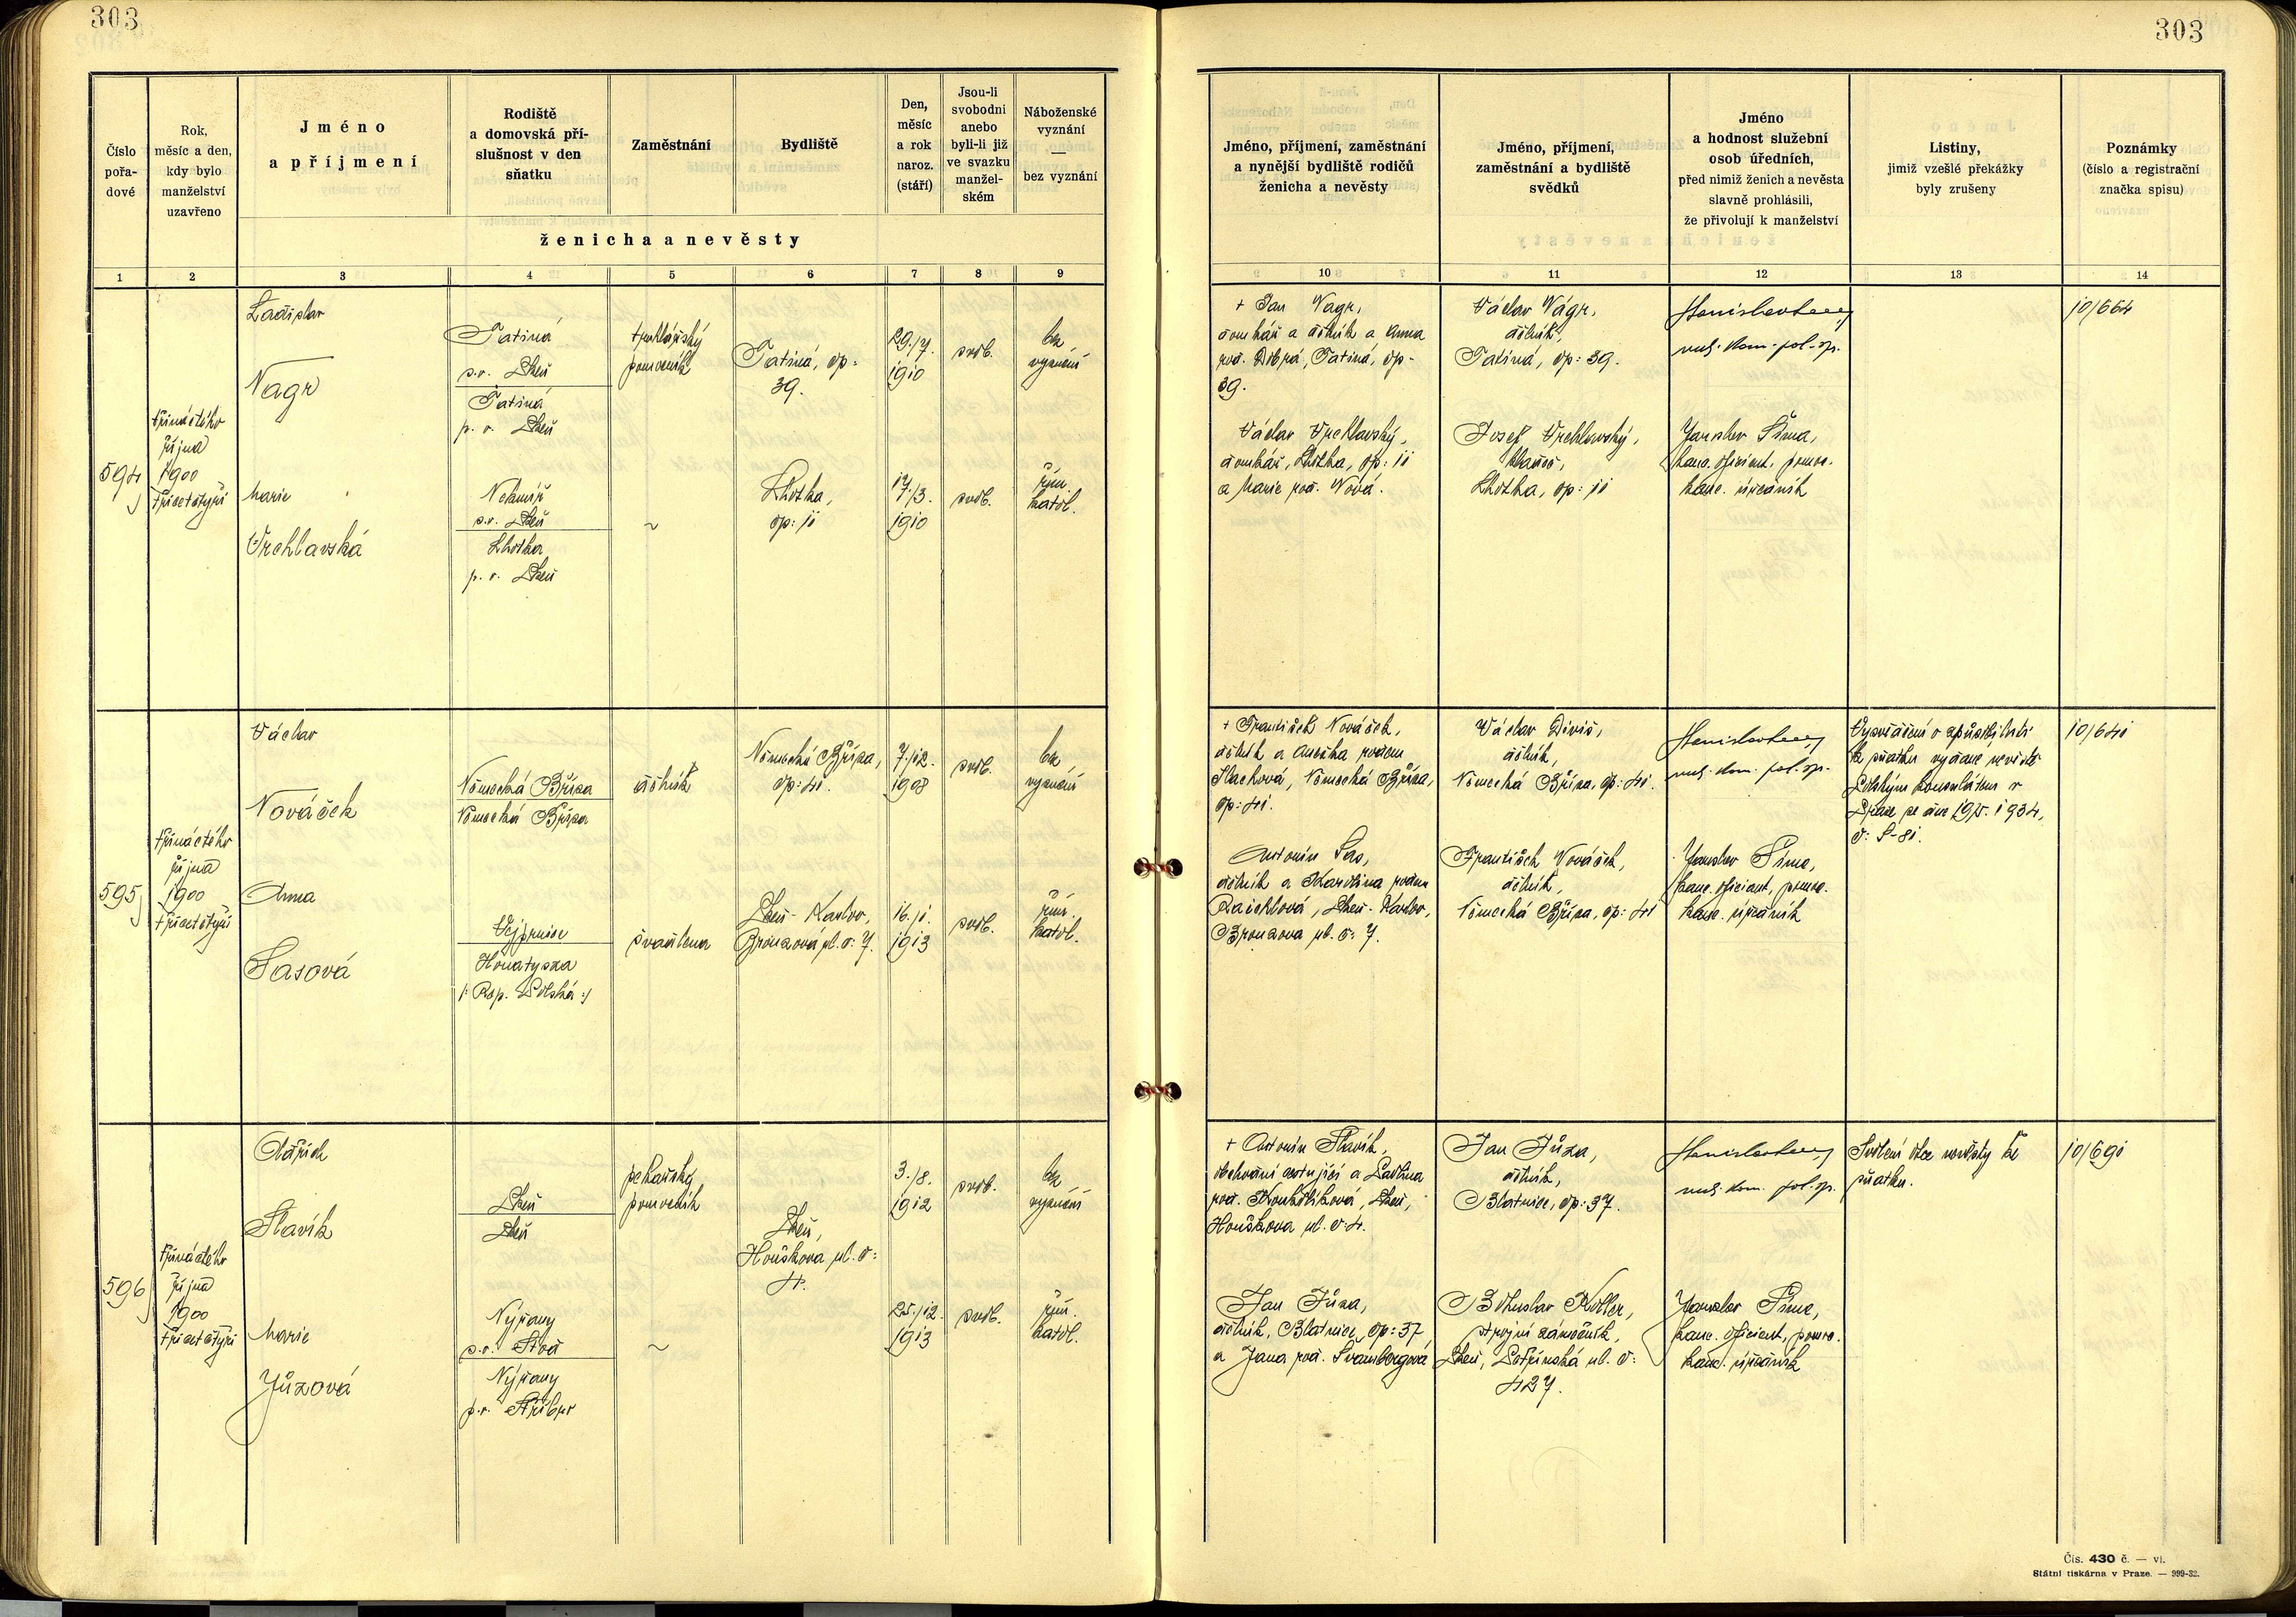 303
303
Číslo
pořa-
dové
Rok,
měsíc a den,
kdy bylo
manželství
uzavřeno
Jméno
a příjmení
Rodiště
a domovská pří-
slušnost v den
sňatku
Zaměstnání
Bydliště
Den,
měsíc
a rok
naroz.
(stáří)
Jsou-li
svobodni
anebo
byli-li již
ve svazku
manžel-
ském
Náboženské
vyznání
—
bez vyznání
ženicha a nevěsty
Jméno, příjmení, zaměstnání
a nynější bydliště rodičů
ženicha a nevěsty
Jméno, příjmení,
zaměstnání a bydliště
svědků
Jméno
a hodnost služební
osob úředních,
před nimiž ženich a nevěsta
slavně prohlásili,
že přivolují k manželství
Listiny,
jimiž vzešlé překážky
byly zrušeny
Poznámky
(číslo a registrační
značka spisu)
1 2 3 4 5 6 7 8 9 10 11 12 13 14
594
třináctého
října
1900
třicetčtyři
Ladislav
Vagr
Tatiná
p. o. Plzeň
Tatiná
p. o. Plzeň
truhlářský
pomocník
Tatiná, čp:
39.
29./7.
1910
svob.
bez
vyznání
Marie
Vrchlavská
Nekmíř
p. o. Plzeň
Lhotka
p. o. Plzeň
~
Lhotka,
čp: 11
17./3.
1910
svob.
řím.
katol.
+ Jan Vagr,
domkář a dělník a Anna
roz. Dobrá, Tatiná, čp-
39.
Václav Vrchlavský,
domkář, Lhotka, čp: 11
a Marie roz. Nová.
Václav Vágr,
dělník,
Tatiná, čp: 39.
Josef Vrchlavský,
Lhotka, čp: 11
rada. kom. pol. sp.
Jaroslav Šíma,
kanc. oficiant, pomoc.
kanc. úředník
10/664
595
třináctého
října
1900
třicetčtyři
Václav
Nováček
Německá Bříza
Německá Bříza
dělník
Německá Bříza,
čp: 41.
7./12.
1908
svob.
bez
vyznání
Anna
Sasová
Vejprnice
Honatysza
/: Rep. Polská :/
švadlena
Plzeň - Karlov,
Bronzová ul. č: 7.
16./1.
1913
svob.
řím.
katol.
+ František Nováček,
dělník a Anežka rozem
Hachová, Německá Bříza,
čp: 41.
Antonín Sas,
dělník a Karolina rozem
Raichlová, Plzeň - Karlov,
Bronzova ul. č: 7.
Václav Diviš,
dělník,
Německá Bříza, čp: 41.
František Nováček,
dělník,
Německá Bříza, čp: 41
rada. kom. pol. sp.
Jaroslav Šíma,
kanc. oficiant, pomoc.
kanc. úředník
Vysvědčení o způsobilosti
ke sňatku vydané nevěstě
Polským konsulátem v
Praze ze dne 19/5. 1934,
č: S-81.
10/641
596
třináctého
října
1900
třicetčtyři
Oldřich
Slavík
Plzeň
Plzeň
pekařský
pomocník
Plzeň,
Houškova ul. č:
4.
3./8.
1912
svob.
bez
vyznání
Marie
Jůzová
Nýřany
p. o. Stod
Nýřany
p. o. Stříbro
~
25./12.
1913
svob.
řím.
katol.
+ Antonín Slavík,
obchodní cestující a Pavlína
roz. Koukolíková, Plzeň,
Houškova ul. č: 4.
Jan Jůza,
dělník, Blatnice, čp: 37
a Jana roz. Švambergová
Jan Jůza,
dělník,
Blatnice, čp: 37.
Bohuslav Koller,
strojní zámečník,
Plzeň, Lotřinská ul. č:
427.
rada. kom. pol. sp.
Jaroslav Šíma,
kanc. oficiant, pomoc.
kanc. úředník
Svolení otce nevěsty ke
sňatku.
10/691
Čís. 430 č. — vl.
Státní tiskárna v Praze. — 999-32.